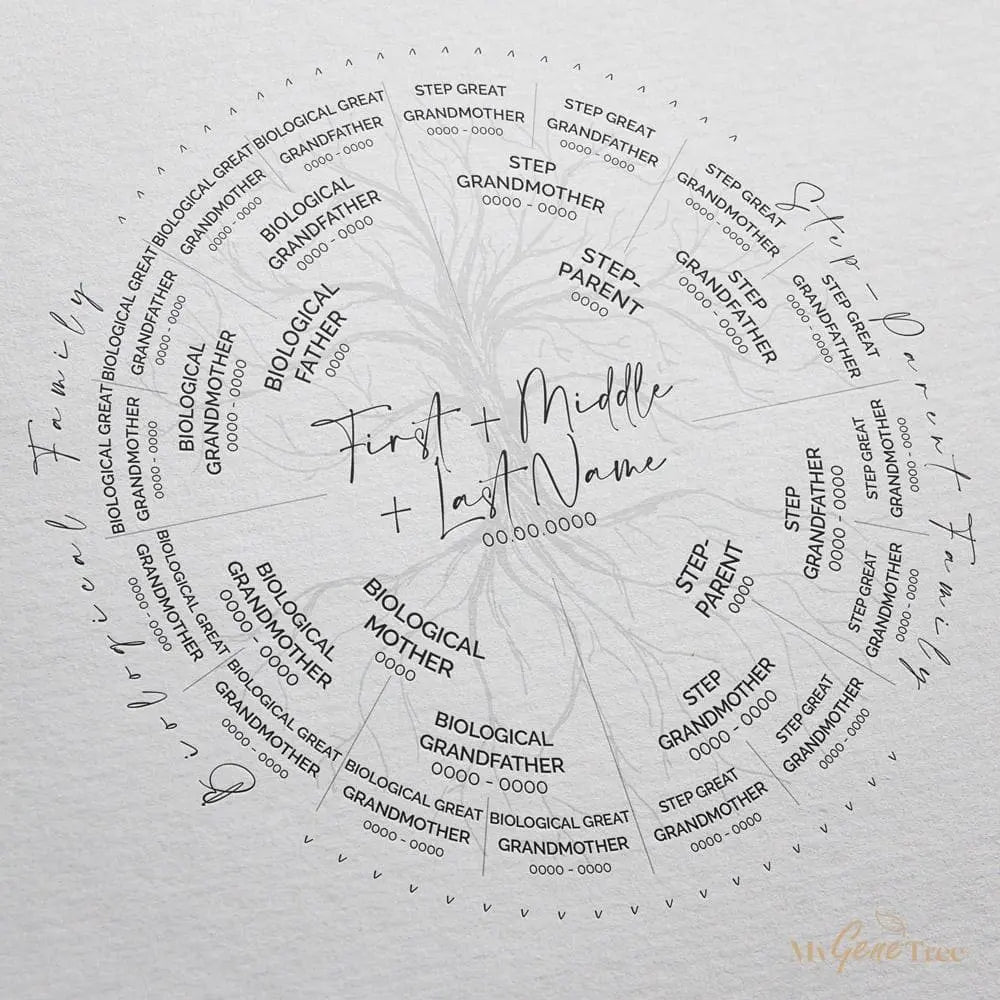 First + Middle
+ Last Name
00.00.0000
BIOLOGICAL
FATHER
0000
STEP-
PARENT
0000
STEP-
PARENT
0000
BIOLOGICAL
MOTHER
0000
BIOLOGICAL
GRANDMOTHER
0000 - 0000
BIOLOGICAL
GRANDFATHER
0000 - 0000
STEP
GRANDMOTHER
0000 - 0000
STEP
GRANDFATHER
0000 - 0000
STEP
GRANDFATHER
0000 - 0000
STEP
GRANDMOTHER
0000 - 0000
BIOLOGICAL
GRANDFATHER
0000 - 0000
BIOLOGICAL
GRANDMOTHER
0000 - 0000
BIOLOGICAL GREAT
GRANDMOTHER
0000 - 0000
BIOLOGICAL GREAT
GRANDFATHER
0000 - 0000
BIOLOGICAL GREAT
GRANDMOTHER
0000 - 0000
BIOLOGICAL GREAT
GRANDFATHER
0000 - 0000
STEP GREAT
GRANDMOTHER
0000 - 0000
STEP GREAT
GRANDFATHER
0000 - 0000
STEP GREAT
GRANDMOTHER
0000 - 0000
STEP GREAT
GRANDFATHER
0000 - 0000
STEP GREAT
GRANDMOTHER
0000 - 0000
STEP GREAT
GRANDMOTHER
0000 - 0000
STEP GREAT
GRANDMOTHER
0000 - 0000
STEP GREAT
GRANDMOTHER
0000 - 0000
BIOLOGICAL GREAT
GRANDMOTHER
0000 - 0000
BIOLOGICAL GREAT
GRANDMOTHER
0000 - 0000
BIOLOGICAL GREAT
GRANDMOTHER
0000 - 0000
BIOLOGICAL GREAT
GRANDMOTHER
0000 - 0000
Biological Family
Step-Parent Family
My Gene Tree